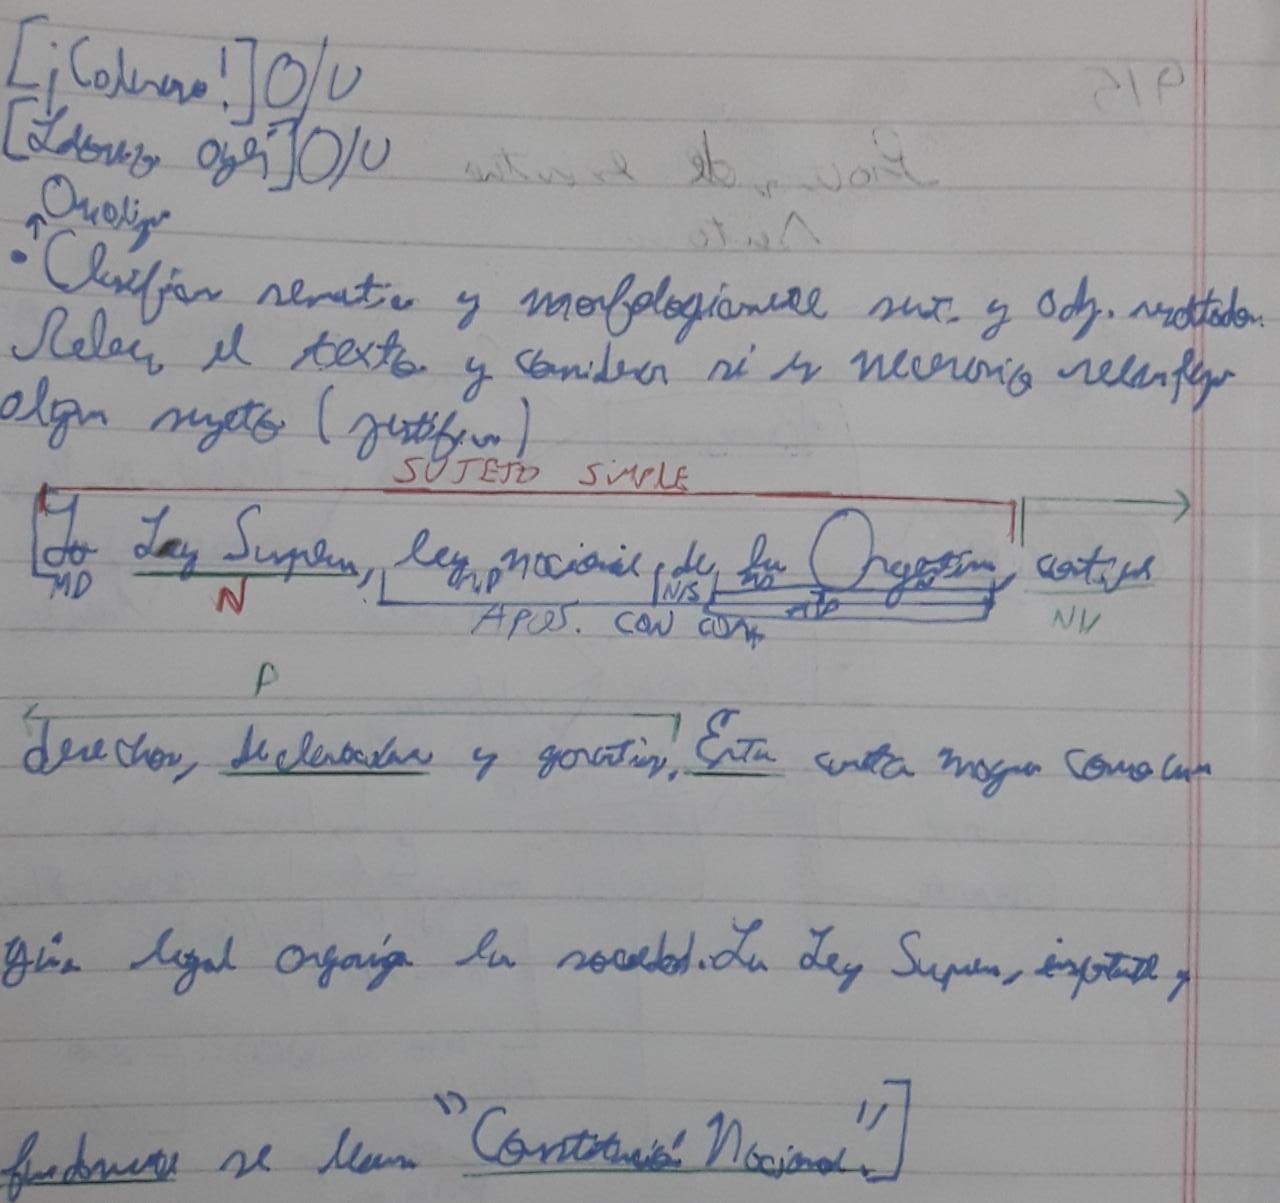 [¡Cordero!] O/U
[ ] O/U
Analizar
y morfologicamente sust. y adj. resaltados.
Releer el texto y considerar si es necesario
algun sujeto (justificar)
SUJETO SIMPLE
[La Ley Suprema, ley nacional de la Argentina, contiene
MD N N/S MD NV
APOS. CON CONS
P
derechos, declaraciones y garantias. Esta carta magna como una
guia legal organiza la sociedad. La Ley Suprema, importante y
fundamental se llama "Constitución Nacional".]